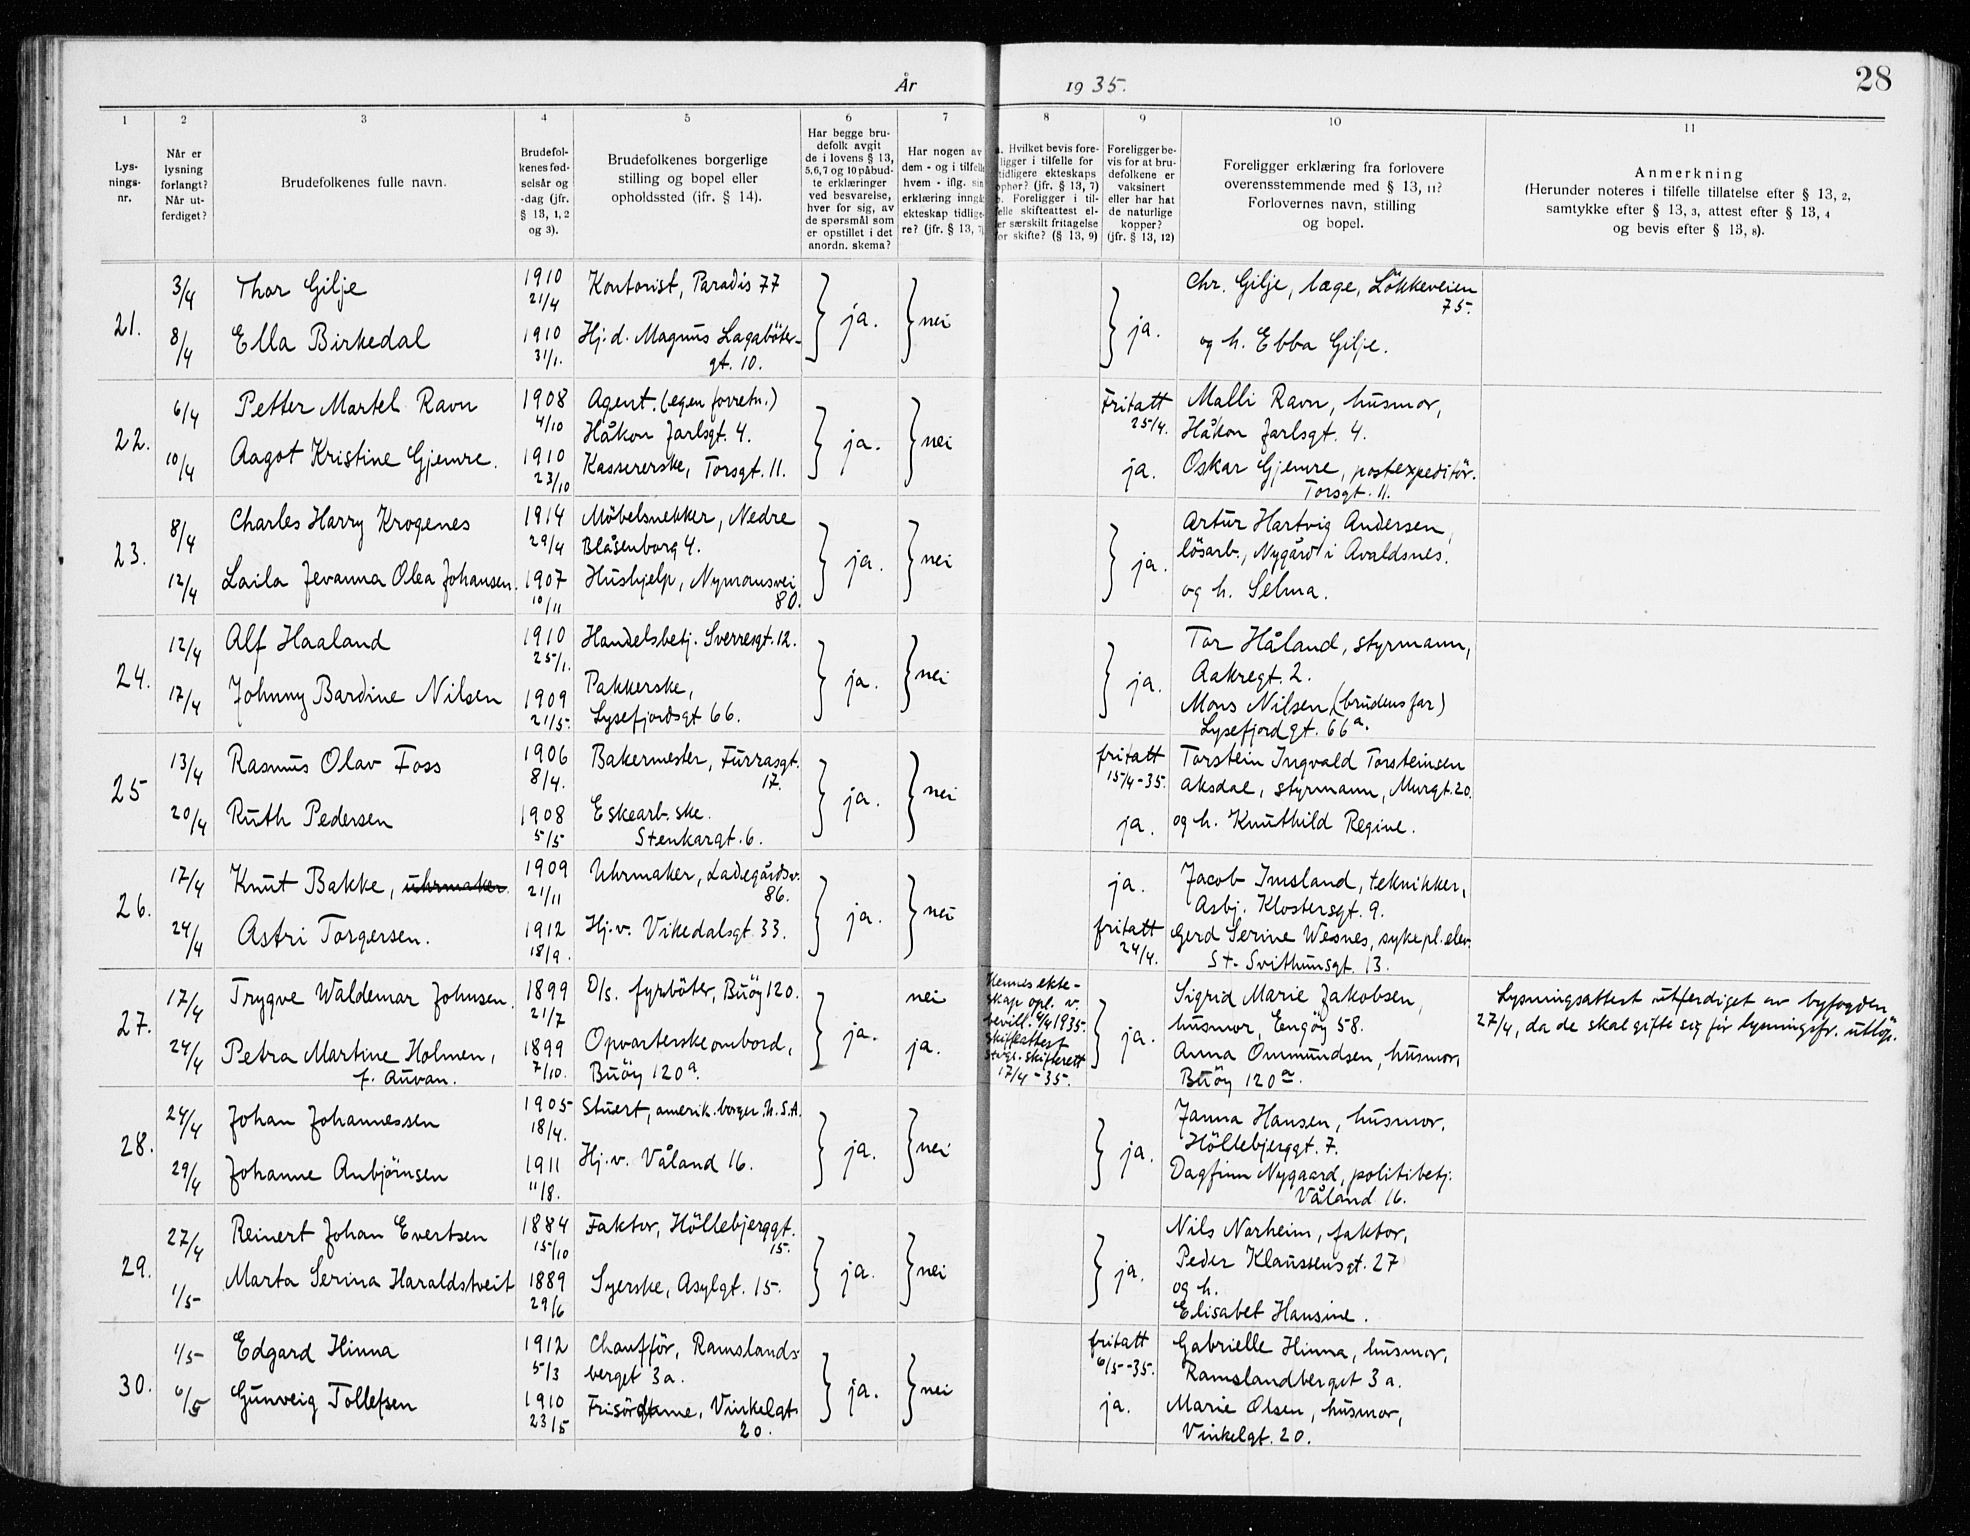 År 1935. 28
1 2 3 4 5 6 7 8 9 10 11
Lys-
nings-
nr.
Når er
lysning
forlangt?
Når ut-
ferdiget?
Brudefolkenes fulle navn.
Brudefol-
kenes fød-
selsår og
-dag (jfr.
§ 13, 1, 2
og 3).
Brudefolkenes borgerlige
stilling og bopel eller
opholdssted (jfr. § 14).
Har begge bru-
defolk avgit
de i lovens § 13,
5,6,7 og 10 påbud-
te erklæringer
ved besvarelse,
hver for sig, av
de spørsmål som
er opstillet i det
anordn. skema?
Har nogen av
dem - og i tilfelle
hvem - iflg. sin
erklæring inngåt
ekteskap tidlige-
re? (jfr. § 13, 7)
a. Hvilket bevis fore-
ligger i tilfelle for
tidligere ekteskaps
ophør? (jfr. § 13, 7)
b. Foreligger i til-
felle skifteattest el-
ler særskilt fritagelse
for skifte? (§ 13, 9)
Foreligger be-
vis for at bru-
defolkene er
vaksinert
eller har hat
de naturlige
kopper?
(jfr. § 13, 12)
Foreligger erklæring fra forlovere
overensstemmende med § 13, 11?
Forlovernes navn, stilling
og bopel.
Anmerkning
(Herunder noteres i tilfelle tillatelse efter § 13, 2,
samtykke efter § 13, 3, attest efter § 13, 4
og bevis efter § 13, 8).
21.
3/4 Thor Gilje 1910 21/4 Kontorist, Paradis 77
8/4 Ella Birkedal 1910 31/1. Hj.d. Magnus Lagaböter-
gt. 10.
ja. nei ja.
Chr. Gilje, læge, Lökkeveien
75.
og h. Ebba Gilje.
22.
6/4 Petter Martel Ravn 1908 4/10 Agent. (egen forretn.)
Håkon Jarlsgt. 4.
10/4 Aagot Kristine Gjemre. 1910 23/10 Kassererske, Torsgt. 11.
ja. nei
Fritatt
25/4.
ja.
Malli Ravn, husmor,
Håkon Jarlsgt. 4.
Oskar Gjemre, postexpeditör.
Torsgt. 11.
23.
8/4 Charles Harry Krogenes 1914 29/4 Möbelsnekker, Nedre
Blåsenborg 4.
12/4 Laila Jevanna Olea Johansen. 1907 10/11 Hushjelp, Nymansvei
80.
ja. nei ja.
Artur Hartvig Andersen,
lösarb., Nygård i Avaldsnes.
og h. Selma.
24.
12/4 Alf Haaland 1910 25/1. Handelsbetj. Sverresgt. 12.
17/4 Johnny Bardine Nilsen 1909 21/5. Pakkerske,
Lysefjordsgt 66.
ja. nei ja.
Tor Håland, styrmann,
Aakregt. 2.
Mons Nilsen, (brudens far)
Lysefjordgt. 66a.
25
13/4 Rasmus Olav Foss 1906 8/4. Bakermester, Furrasgt.
17.
20/4 Ruth Pedersen 1908 5/5 Eskearb.ske.
Stenkargt. 6.
ja. nei
fritatt
15/4-35.
ja.
Torstein Ingvald Torsteinsen
Aksdal, styrmann, Murgt. 20.
og h. Knuthild Regine.
26.
17/4 Knut Bakke, uhrmaker. 1909 21/11 Uhrmaker, Ladegårdsv.
86.
24/4 Astri Torgersen. 1912 18/9. Hj.v. Vikedalsgt. 33.
ja. nei
ja.
fritatt
24/4.
Jacob Imsland, teknikker,
Asbj. Klostersgt. 9.
Gerd Serine Wesnes, sykepl.elev.
St. Svithunsgt. 13.
27.
17/4 Trygve Waldemar Johnsen. 1899 21/7 D/s. fyrböter, Buöy 120.
24/4 Petra Martine Holmen, 1899 7/10. Opvarterske ombord,
f. Auvan. Buöy 120a.
ja. nei
ja.
Hennes ekte-
skap opl. v.
bevill. 4/4 1935.
Skifteattest
Stvgr. skifterett
17/4-35.
ja.
Sigrid Marie Jakobsen,
husmor, Engöy 58.
Anna Ommundsen, husmor,
Buöy 120a.
Lysningsattest utferdiget av byfogden
27/4, da de skal gifte sig för lysningsfr. utlöp.
28.
24/4 Johan Johannessen 1905 18/4. Stuert, amerik. borger. U.S.A.
29/4 Johanne Anbjörnsen 1911 11/8. Hj.v. Våland 16.
ja. nei ja.
Janna Hansen, husmor,
Höllebjerggt. 7.
Dagfinn Nygaard, politibetj.
Våland 16.
29.
27/4 Reinert Johan Evertsen 1884 15/10 Faktor, Höllebjerggt.
15.
1/5 Marta Serina Haraldstveit 1889 29/6 Syerske, Asylgt. 15.
ja. nei ja.
Nils Norheim, faktor,
Peder Klaussensgt. 27
og h.
Elisabet Hansine.
30.
1/5 Edgard Hinna 1912 5/3 Chaufför, Ramslands-
berget 3a.
6/5 Gunveig Tollefsen 1910 23/5 Frisördame, Vinkelgt.
20.
ja. nei
fritatt
6/5-35.
ja.
Gabrielle Hinna, husmor,
Ramslandberget 3a.
Marie Olsen, husmor,
Vinkelgt. 20.